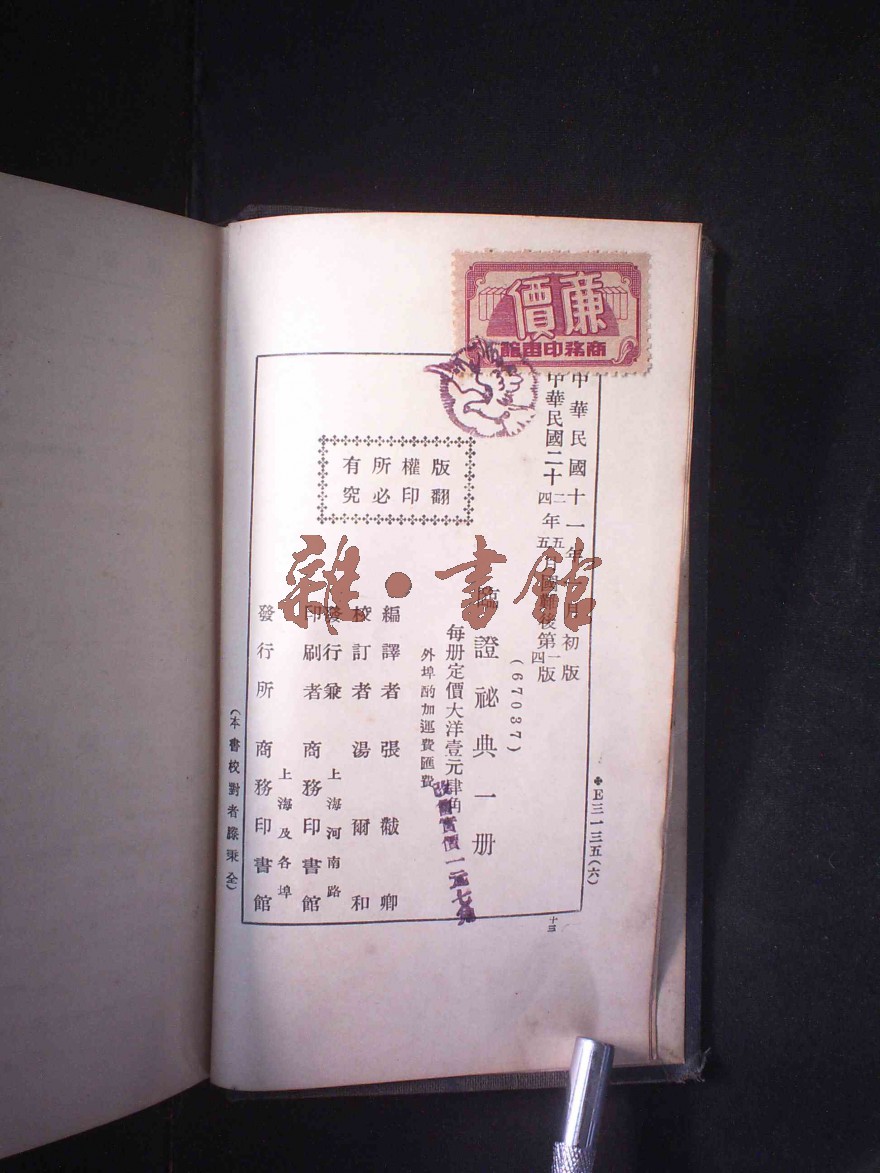 廉價
商務印書館
中華民國十一年一月初版
中華民國二十二年五月國難後第一版
四年五月 四版
(67037)
臨證祕典一册
每册定價大洋壹元肆角
外埠酌加運費匯費
改售實價一元七角
版權所有
翻印必究
編譯者 張黻卿
校訂者 湯爾和
發行兼
印刷者 商務印書館
上海河南路
發行所 商務印書館
上海及各埠
(本書校對者 秉全)
E三一三五(六)
十三
雜·書館